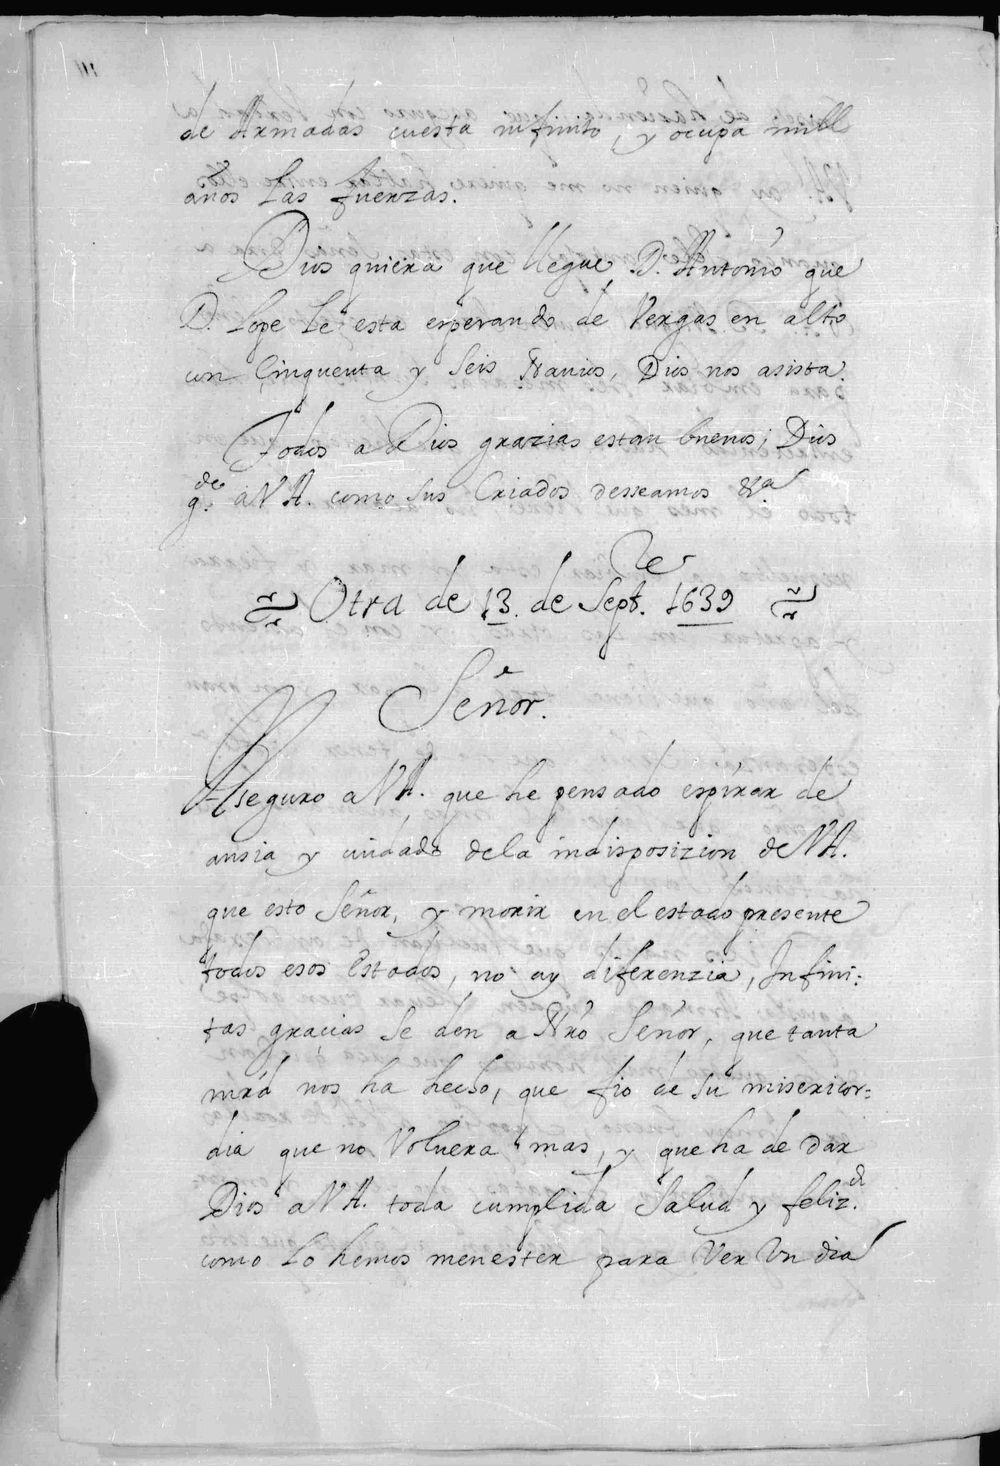 de Armadas cuesta infinito, y ocupa mill
años las fuerzas.
Dios quiera que llegue D. Antonio que
D. Lope le esta esperando de Vergas en alto
con Cinquenta y Seis Navios, Dios nos asista.
Todos a Dios grazias estan buenos; Dios
g.de a VA. como sus Criados desseamos &.a
Otra de 13. de Sept.re 1639
Señor.
Aseguro a VA. que he pensado espirar de
ansia y cuidado de la indisposizion de VA.
que esto Señor, y morir en el estado presente
todos esos Estados, no ay diferenzia, Infini:
tas gracias se den a Nrõ Señor, que tanta
mrd nos ha hecho, que fio de su misericor:
dia que no Voluera mas, y que ha de dar
Dios a VA. toda cumplida Salud y feliz.d
como lo hemos menester para Ver Un dia